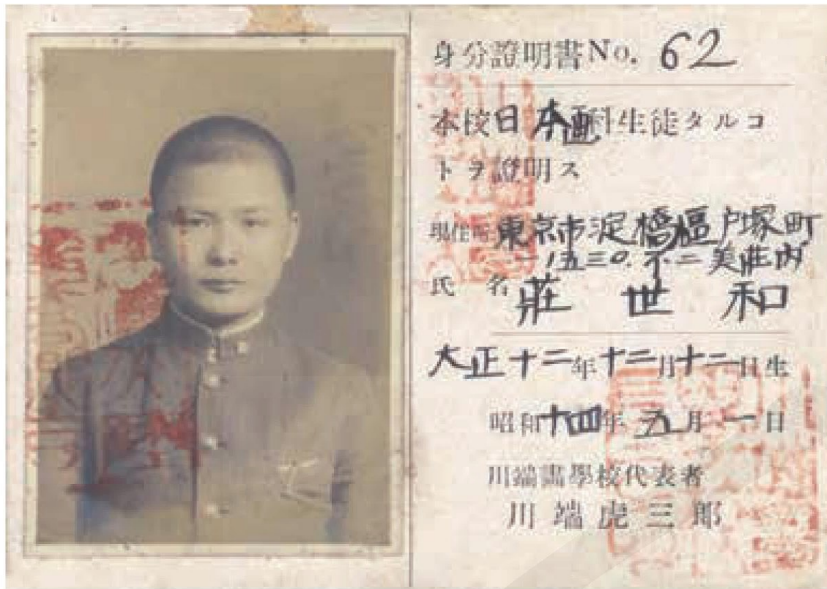 身分證明書No. 62
本校日本画科生徒タルコ
トヲ證明ス
現住所東京市淀橋區戸塚町
一ノ五三〇.不二美莊内
氏名 莊世和
大正十二年十二月十二日生
昭和十四年五月一日
川端畫學校代表者
川端虎三郎